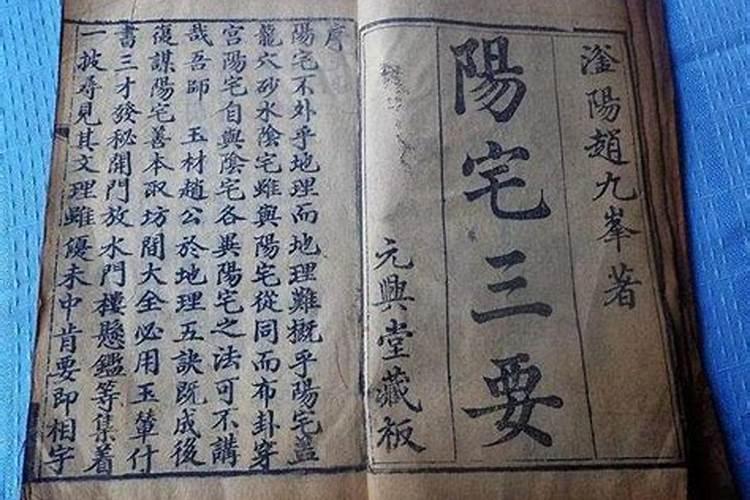 滏陽趙九峯著
陽宅三要
元興堂藏板
序
陽宅不外乎地理而地理難概乎陽宅蓋
龍穴砂水陰宅雖與陽宅從同而布卦穿
宮陽宅自與陰宅各異陽宅之法可不講
哉吾師 玉材趙公於地理五訣既成後
復謀陽宅善本取坊間大全必用玉輦付
書三才發秘開門放水門樓懸鑑等集着
一披尋見其文理雖優未中肯要即相字